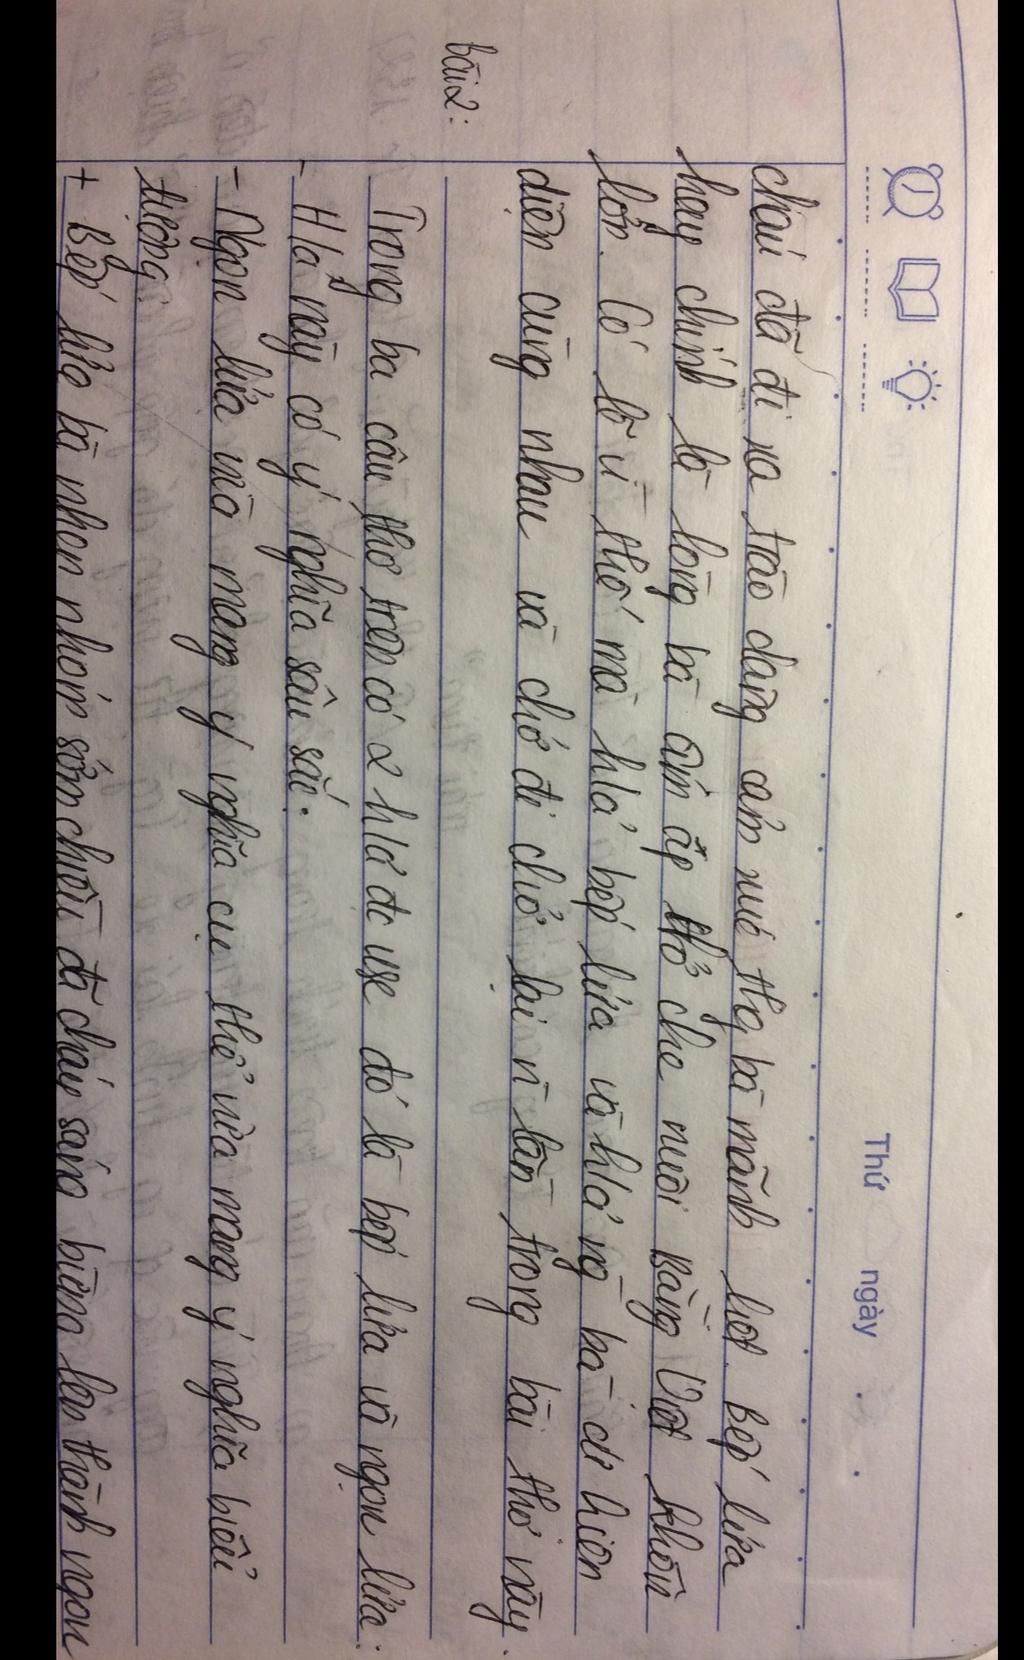 Thứ ngày
cháu đã đi xa trào dâng cảm xúc thg bà mãnh liệt. Bếp lửa
hay chính là lòng bà ấm áp chở che nuôi Bằng Việt khôn
lớn. Có lẽ vì thế mà h/a bếp lửa và h/a ng bà đc hiện
diện cùng nhau và chở đi chở lại n lần trong bài thơ này.
bài 2:
Trong ba câu thơ trên có 2 h/a đc use đó là bếp lửa và ngọn lửa.
- H/a này có ý nghĩa sâu sắc.
- Ngọn lửa vừa mang ý nghĩa cụ thể vừa mang ý nghĩa biểu
tượng.
+ Bếp lửa bà nhen nhóm sớm chiều đã cháy sáng bừng lên thành ngọn